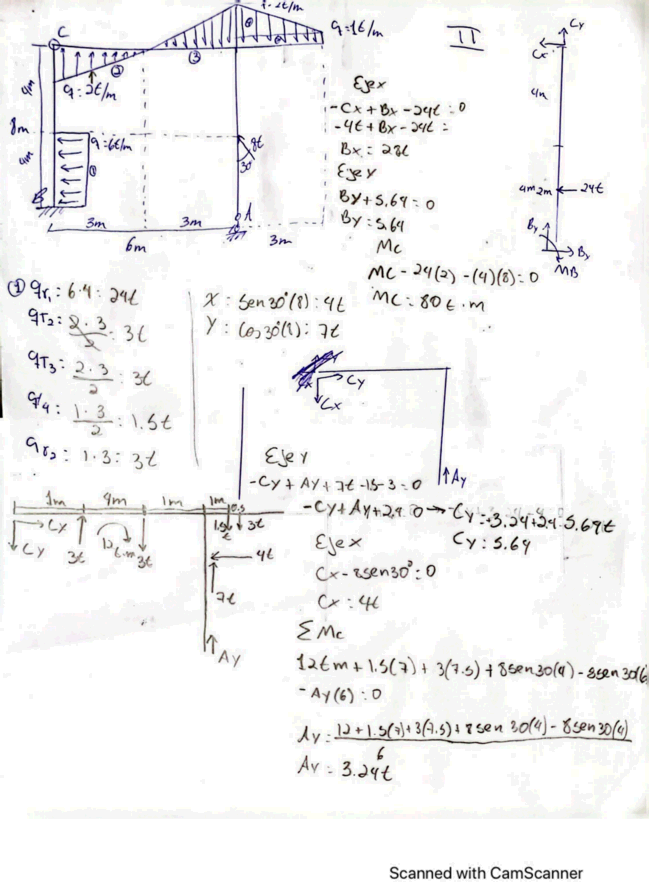 C
q=2t/m
q=1t/m
②
③
④
q=2t/m
4m
8m
q=6t/m
①
4m
8t
30
B
A
3m
3m
3m
6m
II
Cy
Cx
4m
4m
2m
24t
By
Bx
MB
Eje x
-Cx + Bx - 24t = 0
-4t + Bx - 24t =
Bx = 28t
Eje y
By + 5.64 = 0
By = 5.64
Mc
Mc - 24(2) - (4)(8) = 0
Mc = 80t·m
① qr₁ : 6·4 = 24t
qT₂ : 2·3/2 : 3t
qT₃ : 2·3/2 : 3t
q/4 : 1·3/2 : 1.5t
qr₂ : 1·3 = 3t
X : Sen30°(8) : 4t
Y : Cos30°(8) : 7t
Cy
Cx
Ay
Eje y
-Cy + Ay + 7t - 1.5 - 3 = 0
-Cy + Ay + 2.4 = 0 → -Cy = -3.24 + 2.4 - 5.64t
Cy = 5.64
Eje x
Cx - 8sen30° = 0
Cx = 4t
Σ Mc
12tm + 1.5(7) + 3(7.5) + 8sen30(4) - 8sen30(6
- Ay(6) = 0
Ay = 12 + 1.5(7) + 3(7.5) + 8sen30(4) - 8sen30(4)
6
Av = 3.24t
1m
4m
1m
1m
0.5
Cx
Cy
3t
12t·m
3t
1.5t
3t
4t
7t
Ay
Scanned with CamScanner